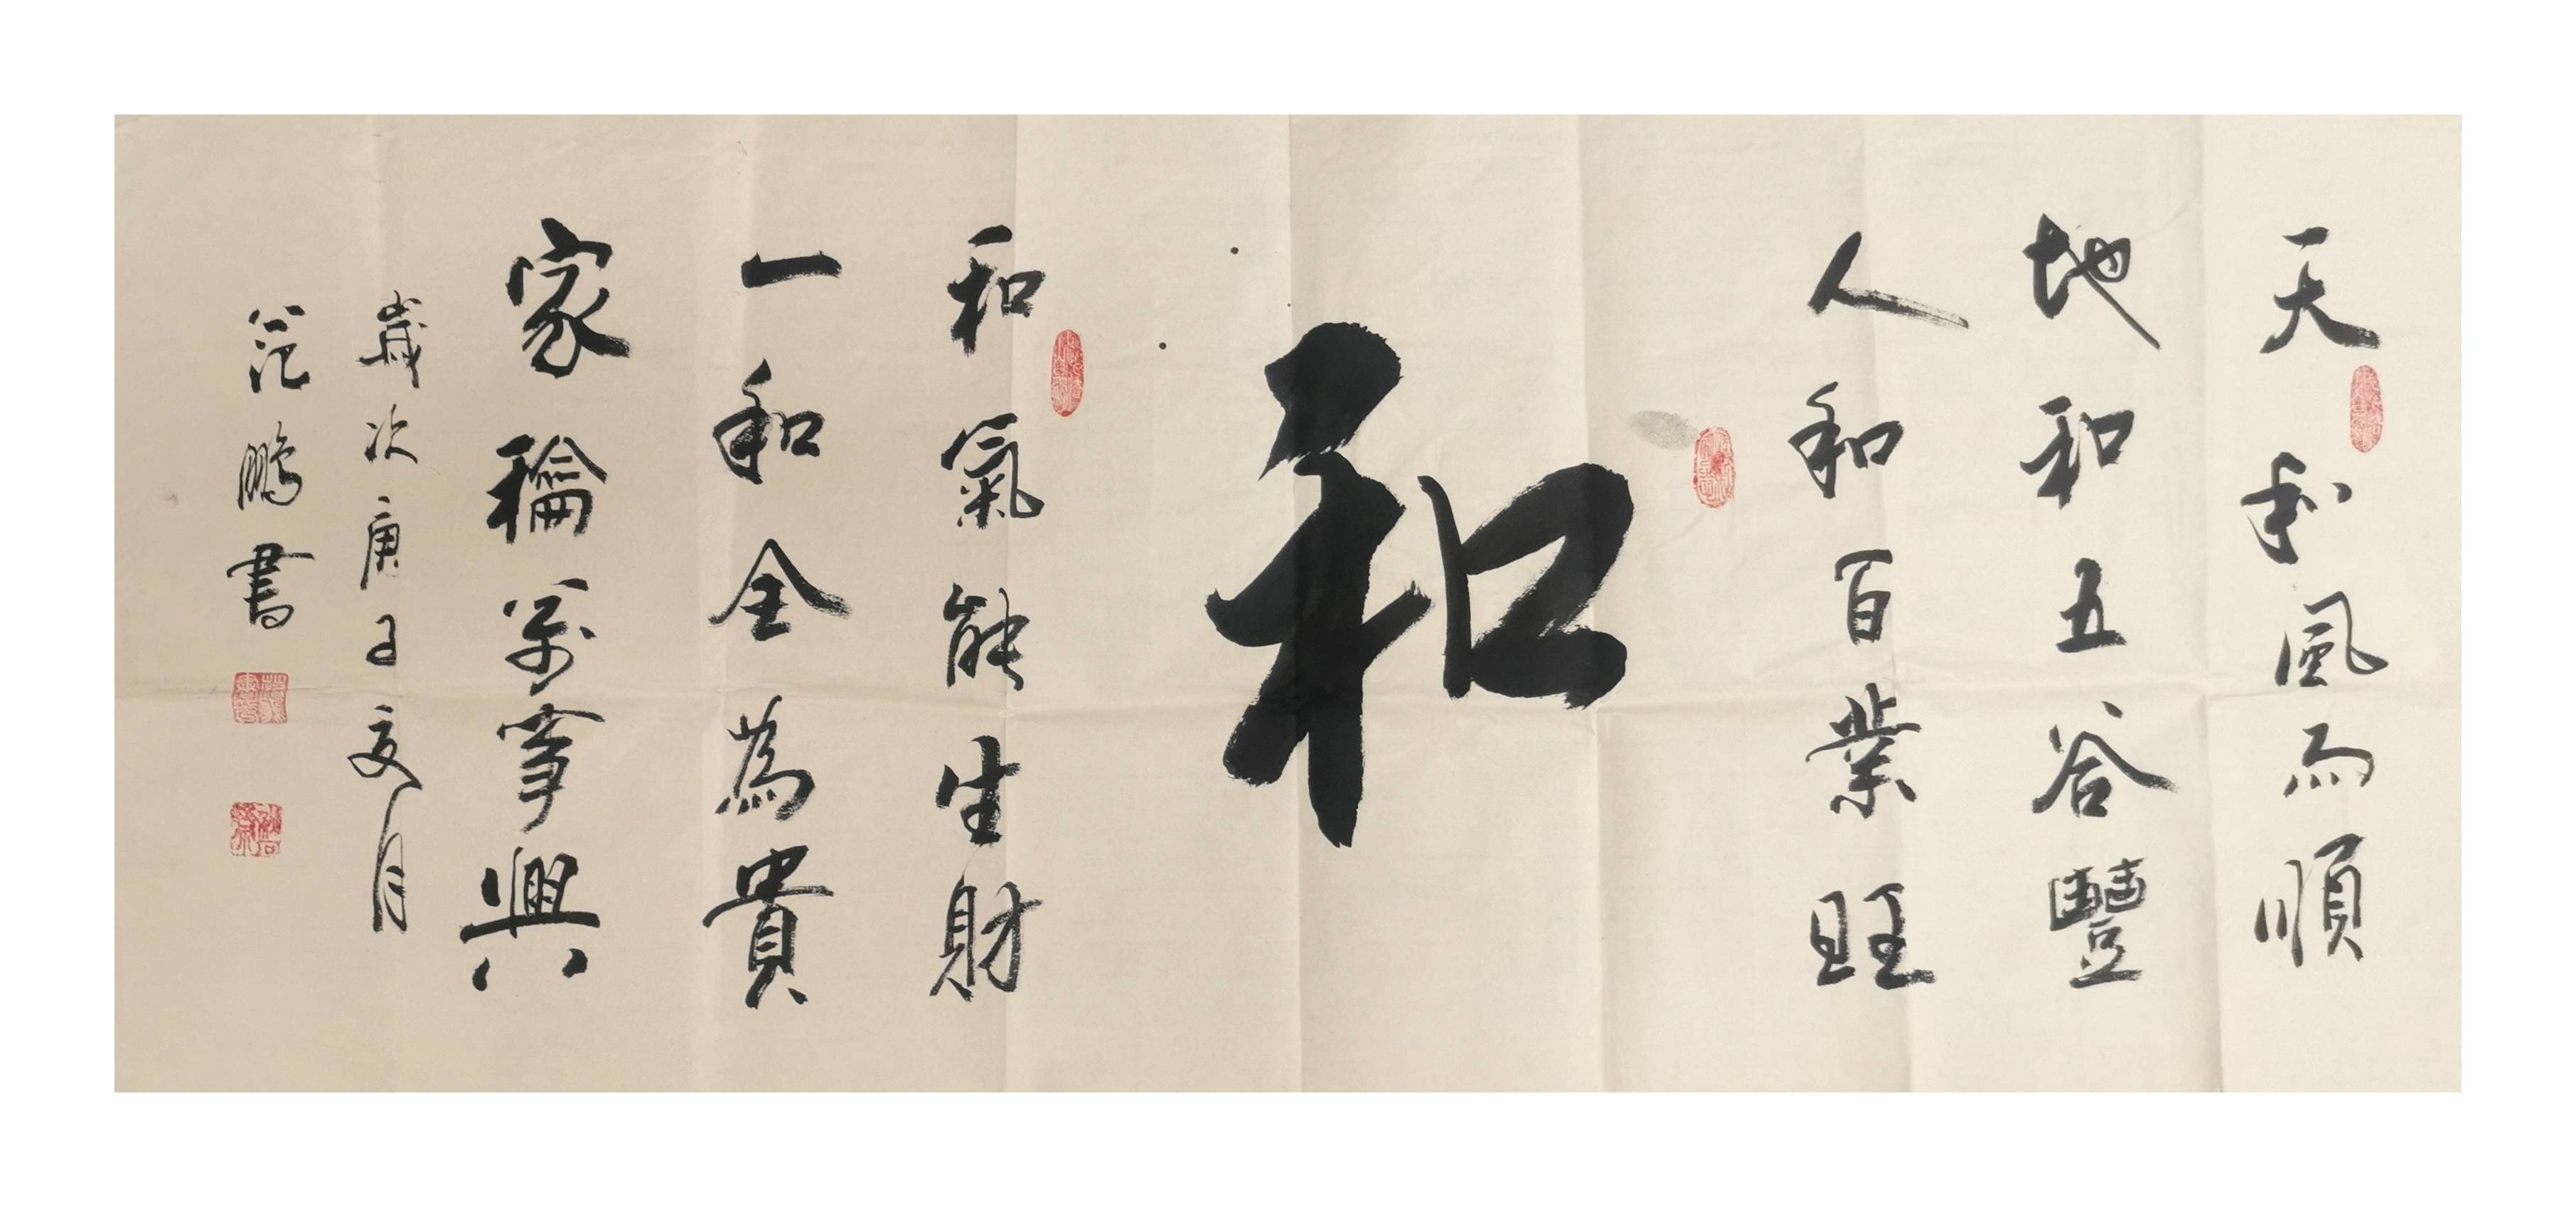 天和風雨順
地和五谷豐
人和百業旺
和
和氣能生財
一和全為貴
家稐萬事興
歲次庚子夏月
范鵬書